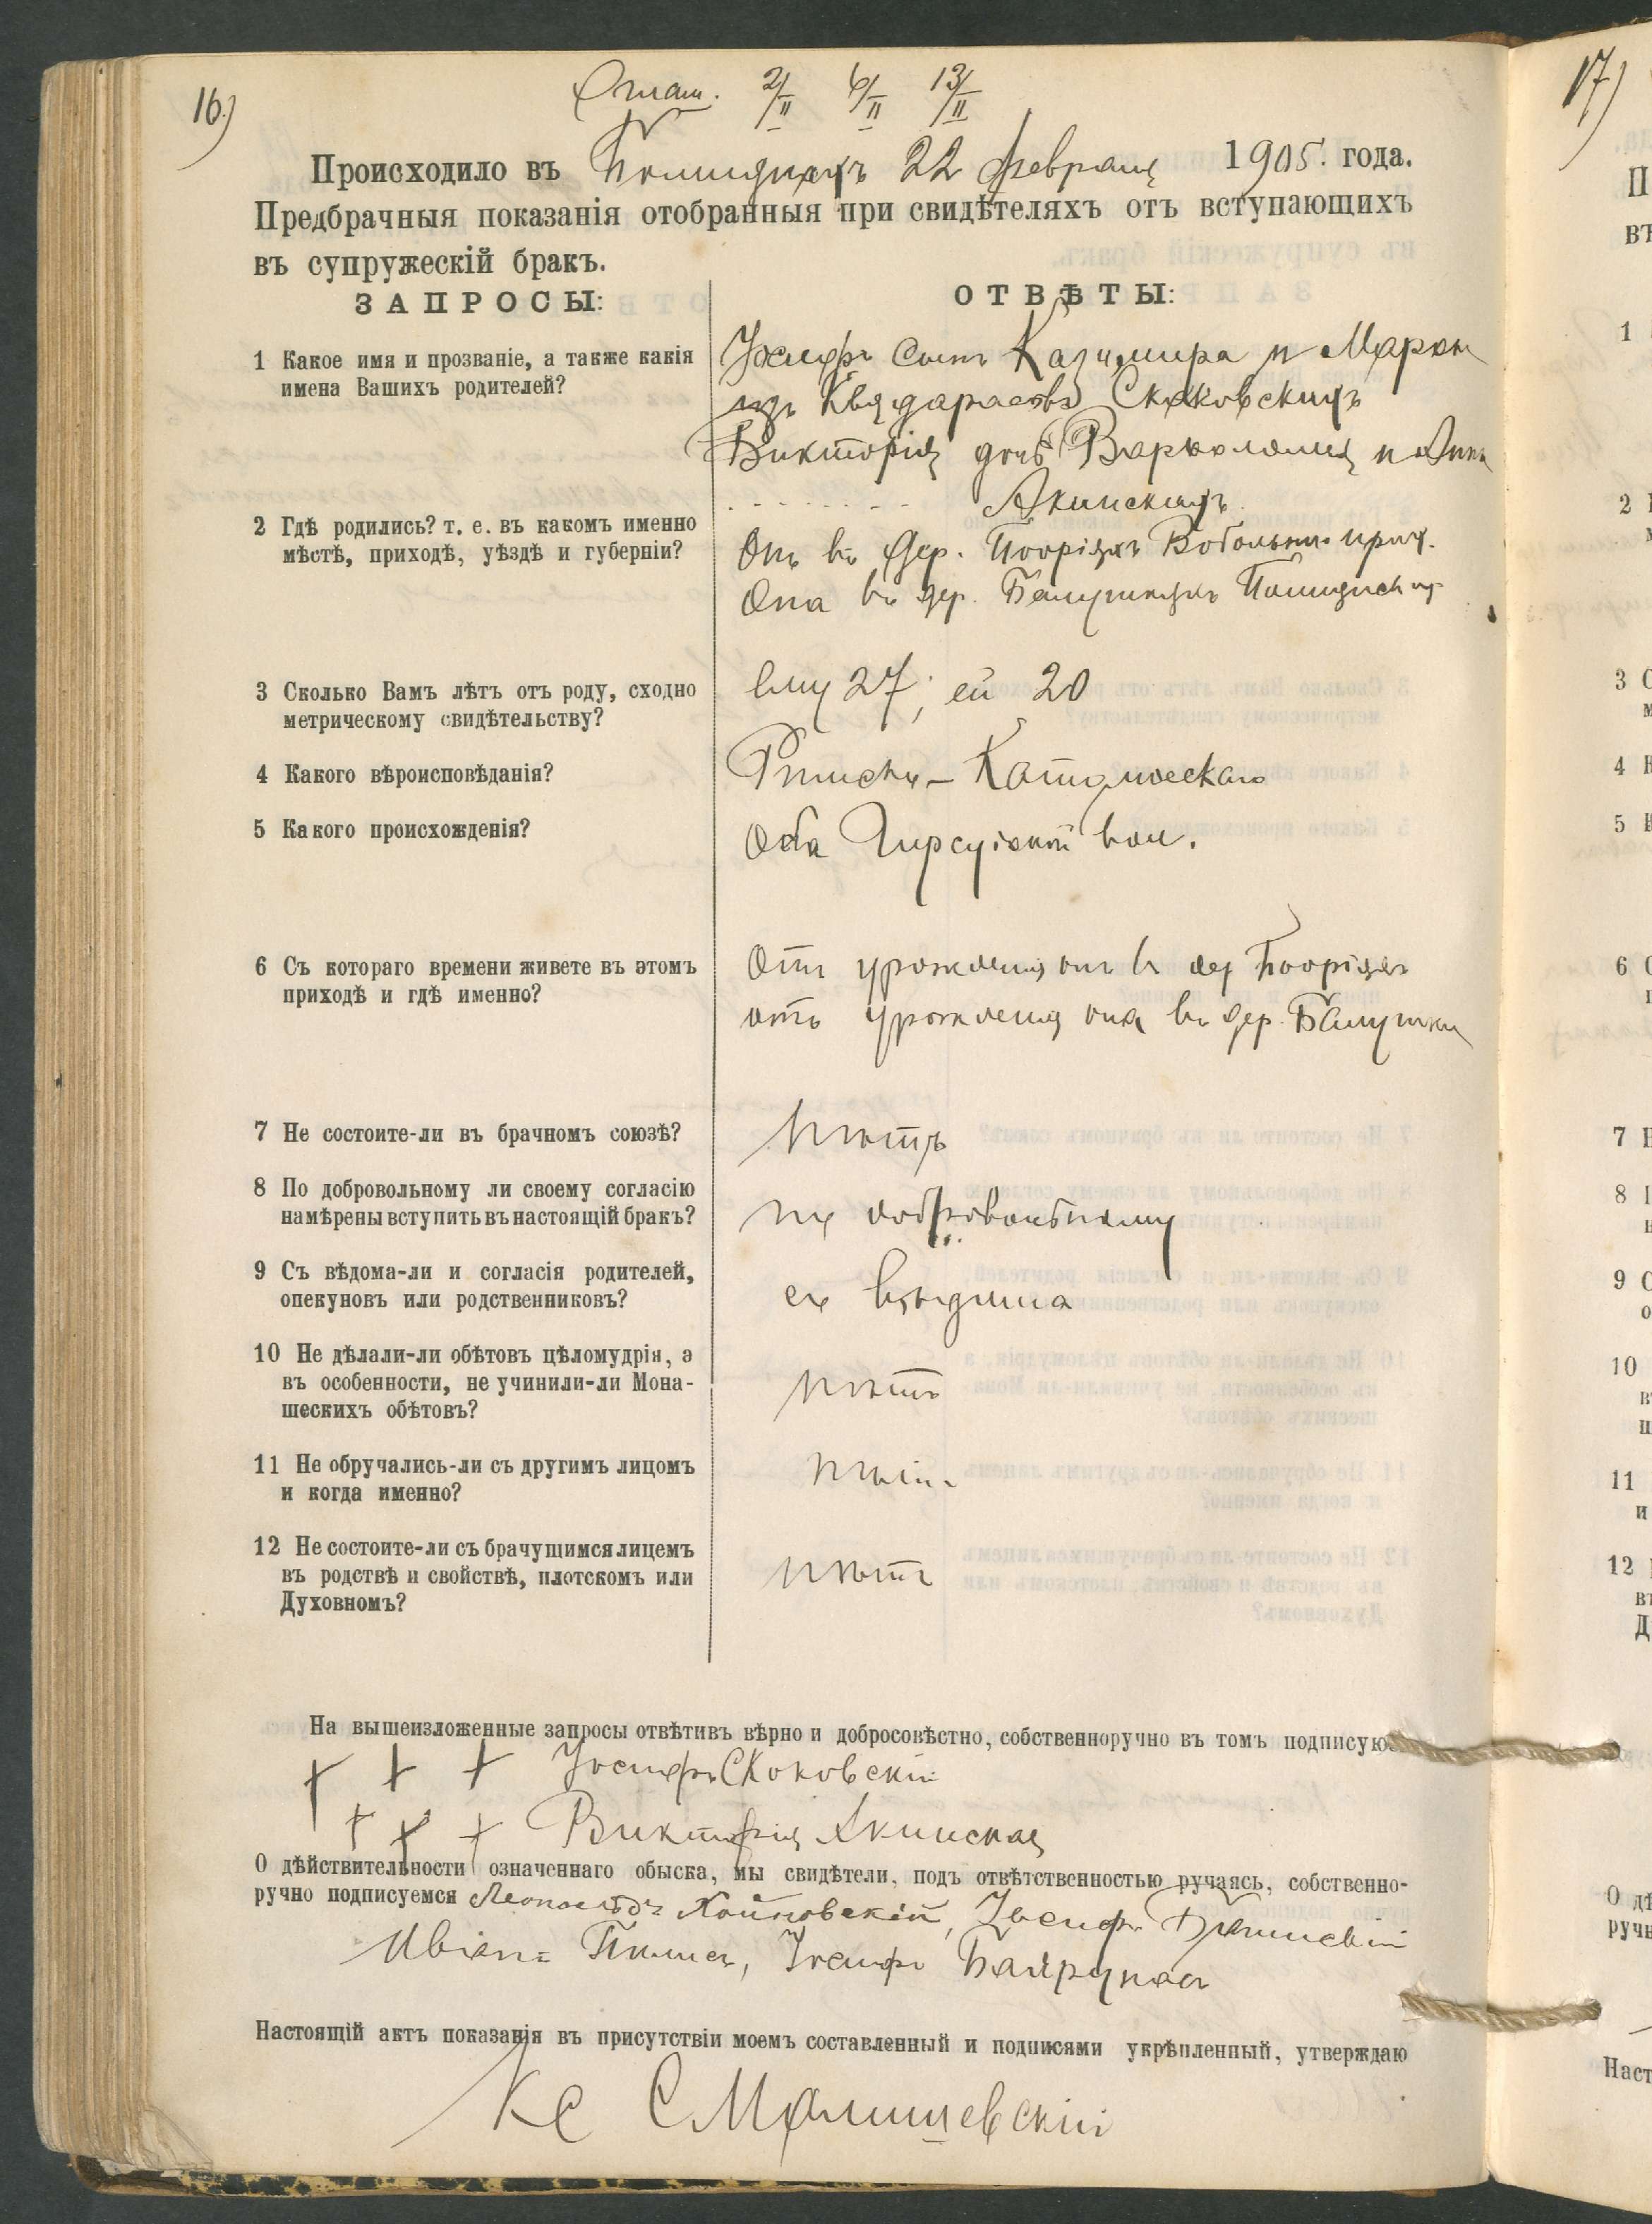 16)
Оглаш. 2/II 6/II 13/II
Происходило въ 22 февраля 1905. года.
Предбрачныя показанія отобранныя при свидѣтеляхъ отъ вступающихъ
въ супружескій бракъ.
ЗАПРОСЫ:
ОТВѢТЫ:
1 Какое имя и прозваніе, а также какія
имена Вашихъ родителей?
Іосифъ сынъ Казимира и
изъ Скоковскихъ
Викторія дочь Варѳоломея и Анны
Акинскихъ
2 Гдѣ родились? т. е. въ какомъ именно
мѣстѣ, приходѣ, уѣздѣ и губерніи?
Онъ въ дер. прих.
Она въ дер.
3 Сколько Вамъ лѣтъ отъ роду, сходно
метрическому свидѣтельству?
ему 27, ей 20
4 Какого вѣроисповѣданія?
Римско-Католическаго
5 Какого происхожденія?
Оба вол.
6 Съ котораго времени живете въ этомъ
приходѣ и гдѣ именно?
Отъ урожденія онъ въ дер
отъ урожденія она въ дер.
7 Не состоите-ли въ брачномъ союзѣ?
Нѣтъ
8 По добровольному ли своему согласію
намѣрены вступить въ настоящій бракъ?
по добровольному
9 Съ вѣдома-ли и согласія родителей,
опекуновъ или родственниковъ?
съ вѣдома
10 Не дѣлали-ли обѣтовъ цѣломудрія, а
въ особенности, не учинили-ли Мона-
шескихъ обѣтовъ?
нѣтъ
11 Не обручались-ли съ другимъ лицомъ
и когда именно?
нѣтъ
12 Не состоите-ли съ брачущимся лицемъ
въ родствѣ и свойствѣ, плотскомъ или
Духовномъ?
нѣтъ
На вышеизложенные запросы отвѣтивъ вѣрно и добросовѣстно, собственноручно въ томъ подписую
+ + + Іосифъ Скоковскій
+ + + Викторія Акинская
О дѣйствительности означеннаго обыска, мы свидѣтели, подъ отвѣтственностью ручаясь, собственно-
ручно подписуемся Леопольдъ Хойновскій, Іосифъ
Іосифъ
Настоящій актъ показанія въ присутствіи моемъ составленный и подписями укрѣпленный, утверждаю
Кс С Малишевскій
17)